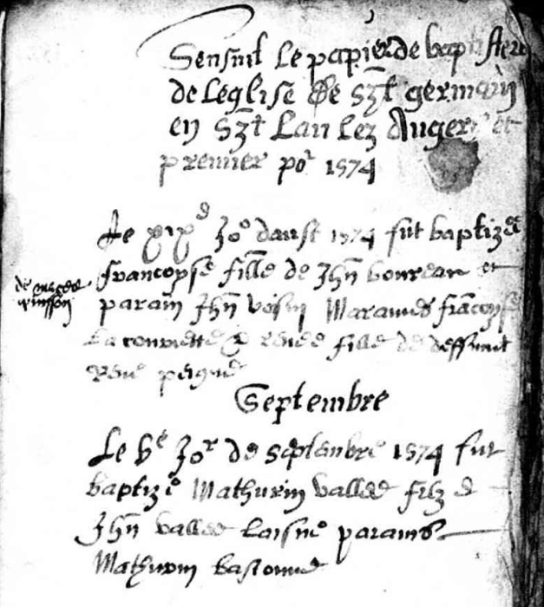 Sensuit le papier de baptistere
de leglise de sñt germain
en sñt Lau lez Angers et
premier po^r 1574
Le xix^e Jo^r daust 1574 fut baptizee
francoyse fille de Jhñ boureau et
parain Jhñ voisin Maraines francoyse
La & renee fille de deffunct
Rene
Septembre
Le V^e Jo^r de septembre 1574 fut
baptize Mathurin vallee filz de
Jhñ vallee Laisne parains
Mathurin